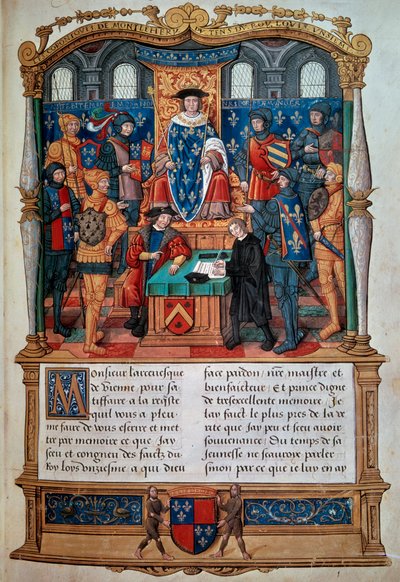 DE MONTLEHERY
Monsieur larcevesque
de Vienne pour sa
tiffaire a la rqste
quil vous a pleu
me faire de vous escrire et met
tre par memoire ce que Jay
sceu et congneu des faictz du
Roy loys unziesme a qui dieu
face pardon / nre maistre et
bienfaicteur / Et prince digne
de tresexcellente memoire / Je
lay faict le plus pres de la ve
rite que Jay peu et sceu avoir
souvenance / Du temps de sa
Jeunesse ne scauroye parler
sinon par ce que ie luy en ay